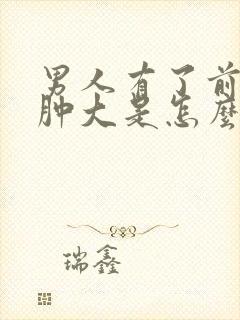 男人有了前
肿大是怎麼
瑞鑫